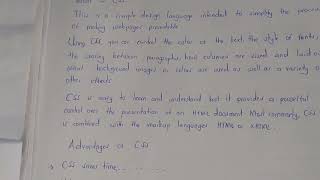 What is CSS
This is a simple design language intended to simplify the process
of making webpages presentable
Using CSS you can control the color of the text, the style of fonts,
the spacing between paragraphs, how columns are sized and laid out
what background images or colors are used as well as a variety of
other effects
CSS is easy to learn and understand but it provides a powerful
control over the presentation of an HTML document Most commonly, CSS
is combined with the markup languages HTML or XHTML.
Advantages of CSS
→ CSS saves time